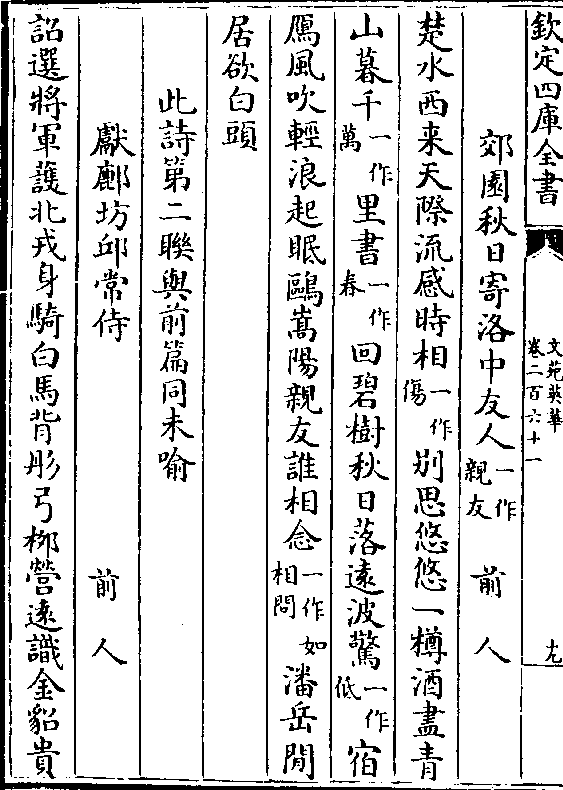 欽定四庫全書
文苑英華
卷二百六十一
九
郊園秋日寄洛中友人一作親友 前人
楚水西来天際流感時相一作傷别思悠悠一樽酒盡青
山暮千一作萬里書一作春回碧樹秋日落遠波驚一作低宿
鴈風吹輕浪起眠鷗嵩陽親友誰相念一作如相問潘岳閒
居欲白頭
此詩第二聯與前篇同未喻
獻鄜坊邱常侍 前人
詔選將軍護北戎身騎白馬背彤弓柳營遠識金貂貴